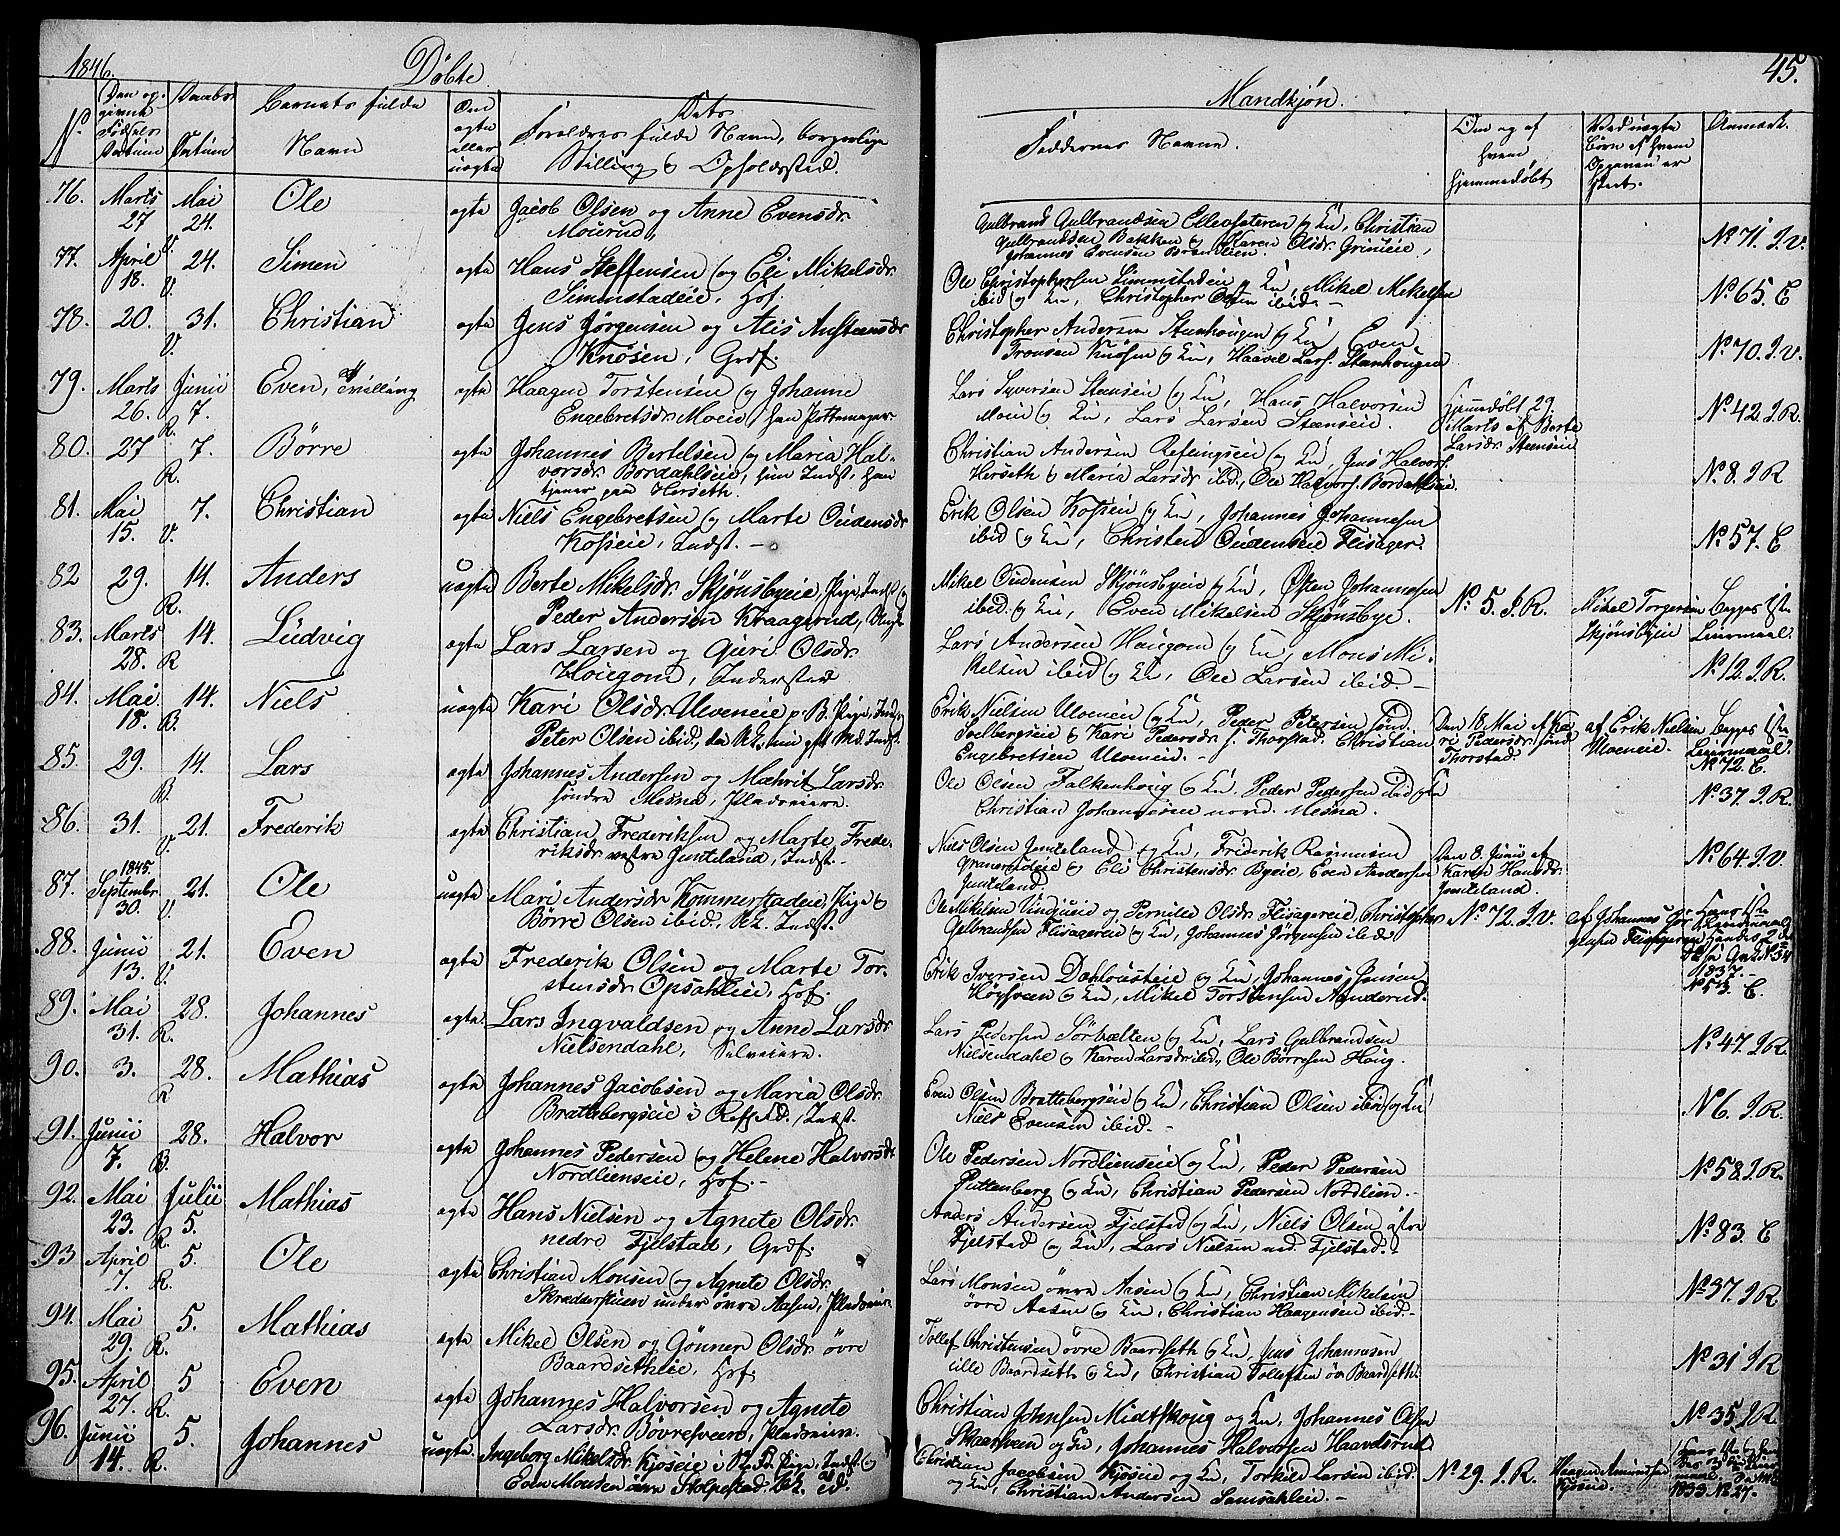 1846.
Döbte
Mandkjön.
45.
No
Den op-
givne
Födsels
Datum
Daabs
Datum
Barnets fulde
Navn
Om
ægte
eller
uægte
Dets
Forældres fulde Navn, borgerlige
Stilling & Opholdssted.
Faddernes Navne.
Om og af
hvem
hjemmedöbt
Ved uægte
Börn af hvem
Opgaven er
skeet.
Anmærk.
76. Marts 27 Mai 24. V. Ole ægte Jacob Olsen og Anne Evensdr.
Moierud,
Gulbrand Gulbrandsen Ellevsæteren og Kn, Christian
Gulbrandsen Bakken og Karen Olsdr. Grimseie,
Johannes Evensen Brændlien.
No 71. J. V.
77. April 18. 24. V. Simen ægte Hans Steffensen og Eli Mikelsdr.
Simenstadeie, Hof.
Ole Christophersen Simenstadeie og Kn, Mikel Mikelsen
ibid og Kn, Christopher Olsen ibid. –
No 65. E
78. 20. 31. V. Christian ægte Jens Jörgensen og Alis Anstensdr.
Knösen, Grdf.
Christopher Andersen Stenhougen og Kn, Even
Tronsen Knösen og Kn, Haavel Lars. Stenhougen
No 70. J. V.
79. Marts 26. Junii 7. R. Even, Tvilling ægte Haagen Torstensen og Johanne
Engebretsdr. Moeie, han Pottemager.
Lars Syversen Steenseie og Kn, Hans Halvorsen
Moeie og Kn, Lars Larsen Steenseie.
Hjemmedöbt 29.
Marts af Berte
Larsdr. Steenseie
No 42. J. R.
80. 27 7. R. Börre ægte Johannes Bertelsen og Maria Hal-
vorsdr. Bordahlseie, hun Indst, han
tjener paa Herseth.
Christian Andersen Refeingseie og Kn, Jens Halvors.
Herseth & Maria Larsdr. ibid, Ole Halvors. Bordahlseie.
No 8. J. R
81. Mai 15. 7. V. Christian ægte Niels Engebretsen og Marte Oudensdr
Kosseie, Indst. –
Erik Olsen Kosseie og Kn, Johannes Johannesen
ibid og Kn, Christen Oudensen Flisager.
No 57. E
82 29. 14. R. Anders uægte Berte Mikelsdr. Skjönsbyeie, Pige, Indst og
Peder Andersen Kraagerud, Ungk.
Mikel Oudensen Skjönsbyeie og Kn, Osten Johannesen
ibid. og Kn, Even Mikelsen Skjönsbye.
No. 5. J. R.
Mikel Torgersen
Skjönsbyeie
Begges 1ste
Leiermaal.
83. Marts 28. 14. R Ludvig ægte Lars Larsen og Guri Olsdr.
Hoiegom, Inderster.
Lars Andersen Hougom og Kn, Mons Mi-
kelsen ibid og Kn, Ole Larsen ibid. –
No 12. J. R.
84. Mai 18. 14. B. Niels uægte Kari Olsdr. Ulveneie p. B. Pige, Inds. og
Peter Olsen ibid,
Erik Nielsen Ulveneie og Kn, Peder Petersen sönd.
Soelbergseie & Kari Pedersdr. s. Thorstad. Christian
Engebretsen Ulveneie. –
Den 18. Mai af Ka-
ri Pedersdr. sönd
Thorstad.
af Erik Nielsen
Ulveneie.
Begges 1ste
Leiermaal.
No 72. E.
85 29. 14. B. Lars ægte Johannes Andersen og Mathrit Larsdr.
söndre Mesna, Pladseiere.
Ole Olsen Falkenhoug & Kn. Peder Pedersen ibid og Kn
Christian Johannesen nord. Mesna.
No 37. J. R.
86. 31. 21. V. Frederik ægte Christian Frederiksen og Marte Frede-
riksdr. vestre Jemteland, Indst. –
Niels Olsen Jemteland og Kn, Frederik Rasmussen
Granerudeie & Eli Christensdr. Byeie, Even Andersen
Jemteland.
Den 8. Junii af
Karen Hansdr.
Jemteland.
No 64. J. V.
87. 1845. Septembr. 30. 21. V. Ole uægte Mari Andersdr. Kommerstadeie, Pige &
Börre Olsen ibid., Indst.
Ole Mikelsen Lindgueie og Pernille Olsdr. Flisagereie, Christopher
Gulbrandsen Flisagereie og Kn, Johannes Jörgensen ibid
No 72. J. V.
af Johannes Jör-
gensen Flisagereie
1837. –
88. Junii 13. 21. V. Even ægte Frederik Olsen og Marte Tor-
stensdr. Opsahleie, Hof.
Erik Iversen Dæhlousteie og Kn, Johannes Jensen
Höysveen & Kn, Mikel Torstensen Manderud.
No 53. E.
89. Mai 31. 28. R. Johannes ægte Lars Ingvaldsen og Anne Larsdr.
Nielsendahl, Selveiere.
Lars Pedersen Sörbælten og Kn, Lars Gulbrandsen
Nielsendahl & Karen Larsdr. ibid, Ole Börresen Houg.
No 47. J. R.
90. 3. 28. R Mathias ægte Johannes Jacobsen og Maria Olsdr.
Brattebergseie, Indst.
Even Olsen Brattebergseie og Kn, Christian Olsen ibid og Kn,
Niels Evensen ibid. –
No 6. J. R.
91. Junii 7. 28. B. Halvor ægte Johannes Pedersen og Helene Halvorsdr.
Nordlienseie, Hof. –
Ole Pedersen Nordlienseie og Kn, Peder Pedersen
Puttenberg og Kn, Christian Pedersen Nordlien. –
No 58. J. R.
92. Mai 23. Julii 5. R. Mathias ægte Hans Nielsen og Agnete Olsdr.
nedre Fjelstad, Grdf.
Anders Andersen Fjelstad og Kn, Niels Olsen östre
Fjelstad og Kn, Lars Nielsen ned. Fjelstad.
No 83. E
93 April 7. 5. R. Ole ægte Christian Monsen og Agnete Olsdr.
Skrædderstuen under övre Aasen, Pladseier.
Lars Monsen övre Aasen og Kn, Christian Mikelsen
övre Aasen og Kn, Christian Haagensen ibid. –
No 37. J. R
94. Mai 29. 5. R. Mathias ægte Mikel Olsen og Gönner Olsdr. övre
Baardsetheie, Hof.
Tollef Christensen övre Baardseth & Kn, Jens Johannesen
lille Baardseth & Kn, Christian Tollefsen övr Baardseth.
No 31 J. R
95. April 27. 5 R. Even ægte Johannes Halvorsen og Agnete
Larsdr. Bövresveen, Pladseiere.
Christian Johnsen Midtskoug og Kn, Johannes Olsen
Skaarsveen og Kn, Johannes Halvorsen Haavelsrud
No 35. J. R
96. Junii 14. 5. R. Johannes uægte Ingeborg Mikelsdr. Kjoseie, Pige, Indst &
Even Monsen övre Stolpestad.
Christian Jacobsen Kjoseie og Kn, Torkild Larsen ibid.
og Kn, Christian Andersen Samsahleie. –
No 29. J. R.
Haagen Amundsen
Kjoseie.
1833 No 27.